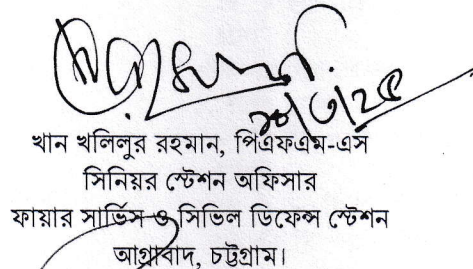 খান খলিলুর রহমান, পিএফএম-এস
সিনিয়র স্টেশন অফিসার
ফায়ার সার্ভিস ও সিভিল ডিফেন্স স্টেশন
আগ্রাবাদ, চট্টগ্রাম।